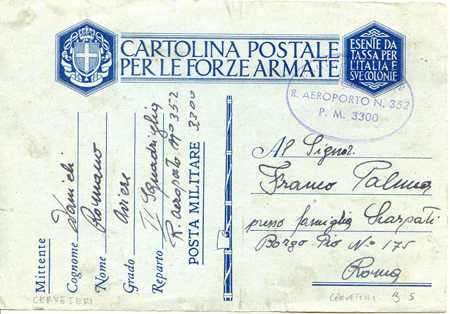 CARTOLINA POSTALE
PER LE FORZE ARMATE
ESENTE DA
TASSA PER
L'ITALIA E
SVE COLONIE
R. AEROPORTO N. 352
P. M. 3300
Mittente
Cognome Danieli
Nome Romano
Grado Aviere
Reparto II Squadriglia
R. aeroporto n° 352
POSTA MILITARE 3300
Al Signor.
Franco Palma
presso famiglia Scarpati
Borgo Pio N° 175
Roma
CERVETERI
CERVETERI